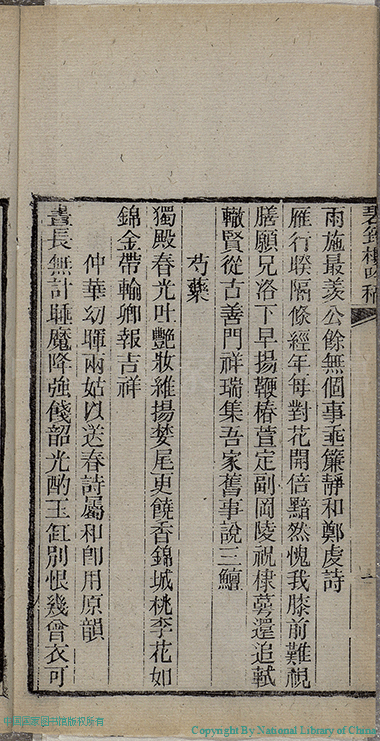 雨施最羨公餘無個事垂簾靜和鄭虔詩
雁行睽隔條經年每對花開倍黯然愧我膝前難視
膳願兄洛下早揚鞭椿萱定副岡陵祝棣萼還追軾
轍賢從古善門祥瑞集吾家舊事說三鱣
芍藥
獨殿春光吐艷妝維揚婪尾更饒香錦城桃李花如
錦金帶輸卿報吉祥
仲華幼暉兩姑以送春詩屬和卽用原韻
晝長無計睡魔降強餞韶光酌玉缸別恨幾曾衣可
中国国家图书馆版权所有
Copyright By National Library of China